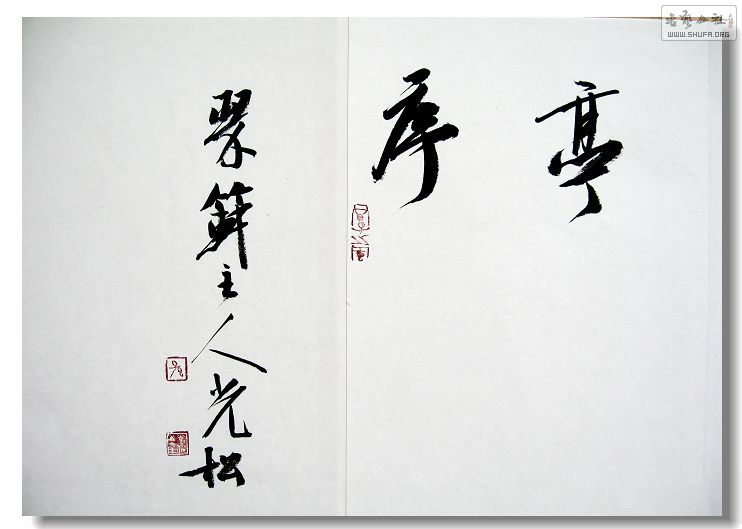 亭
序
聚主人光松
书艺公社
WWW.SHUFA.ORG